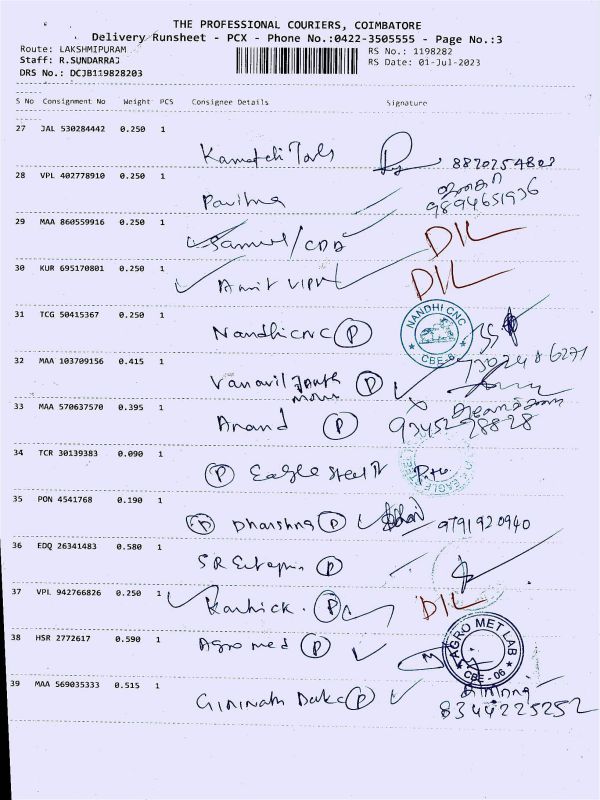 THE PROFESSIONAL COURIERS, COIMBATORE
Delivery Runsheet - PCX - Phone No.:0422-3505555 - Page No.:3
Route: LAKSHMIPURAM
RS No.: 1198282
Staff: R.SUNDARRAJ
RS Date: 01-Jul-2023
DRS No.: DCJB119828203
S No Consignment No Weight PCS Consignee Details Signature
27 JAL 530284442 0.250 1
28 VPL 402778910 0.250 1
Pavithra
9894651936
29 MAA 860559916 0.250 1
Samuel/CDD
DIL
30 KUR 695170801 0.250 1
Amit Vipul
DIL
31 TCG 50415367 0.250 1
Nandhi CNC P
NANDHI CNC
CBE-6
32 MAA 103709156 0.415 1
Vanavil P
33 MAA 570637570 0.395 1
Anand P
34 TCR 30139383 0.090 1
P Eagle Steel
EAGLE
35 PON 4541768 0.190 1
P Dharshna P 9791920940
36 EDQ 26341483 0.580 1
S R P
37 VPL 942766826 0.250 1
Karthick. P
DIL
38 HSR 2772617 0.590 1
Agro med P
AGRO MET LAB
CBE-06
39 MAA 569035333 0.515 1
P
8344225252